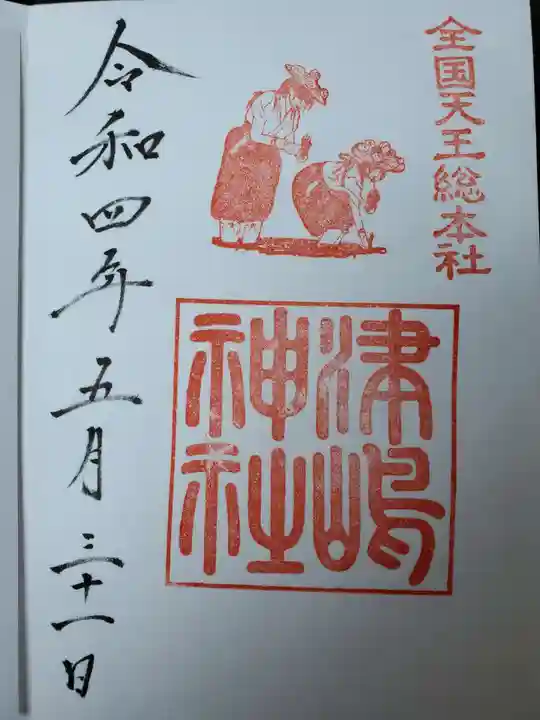 全国天王総本社
津嶋
神社
令和四年五月三十一日